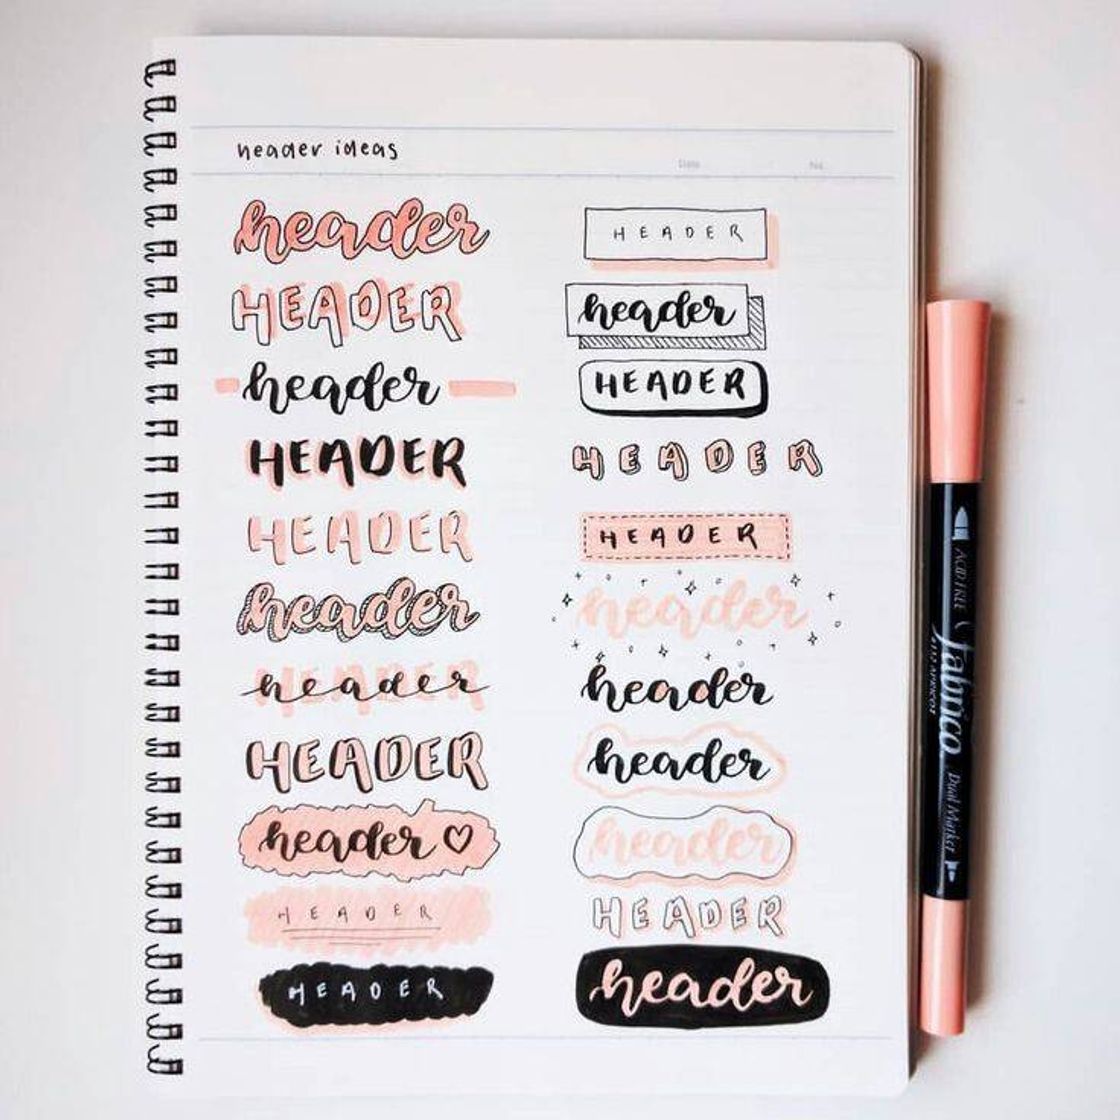 header ideas
Date
No.
header
HEADER
header
HEADER
HEADER
header
HEADER
header
HEADER
header ♡
HEADER
HEADER
HEADER
header
HEADER
HEADER
HEADER
header
header
header
header
HEADER
header
ACID FREE
fabrico
Dual Marker